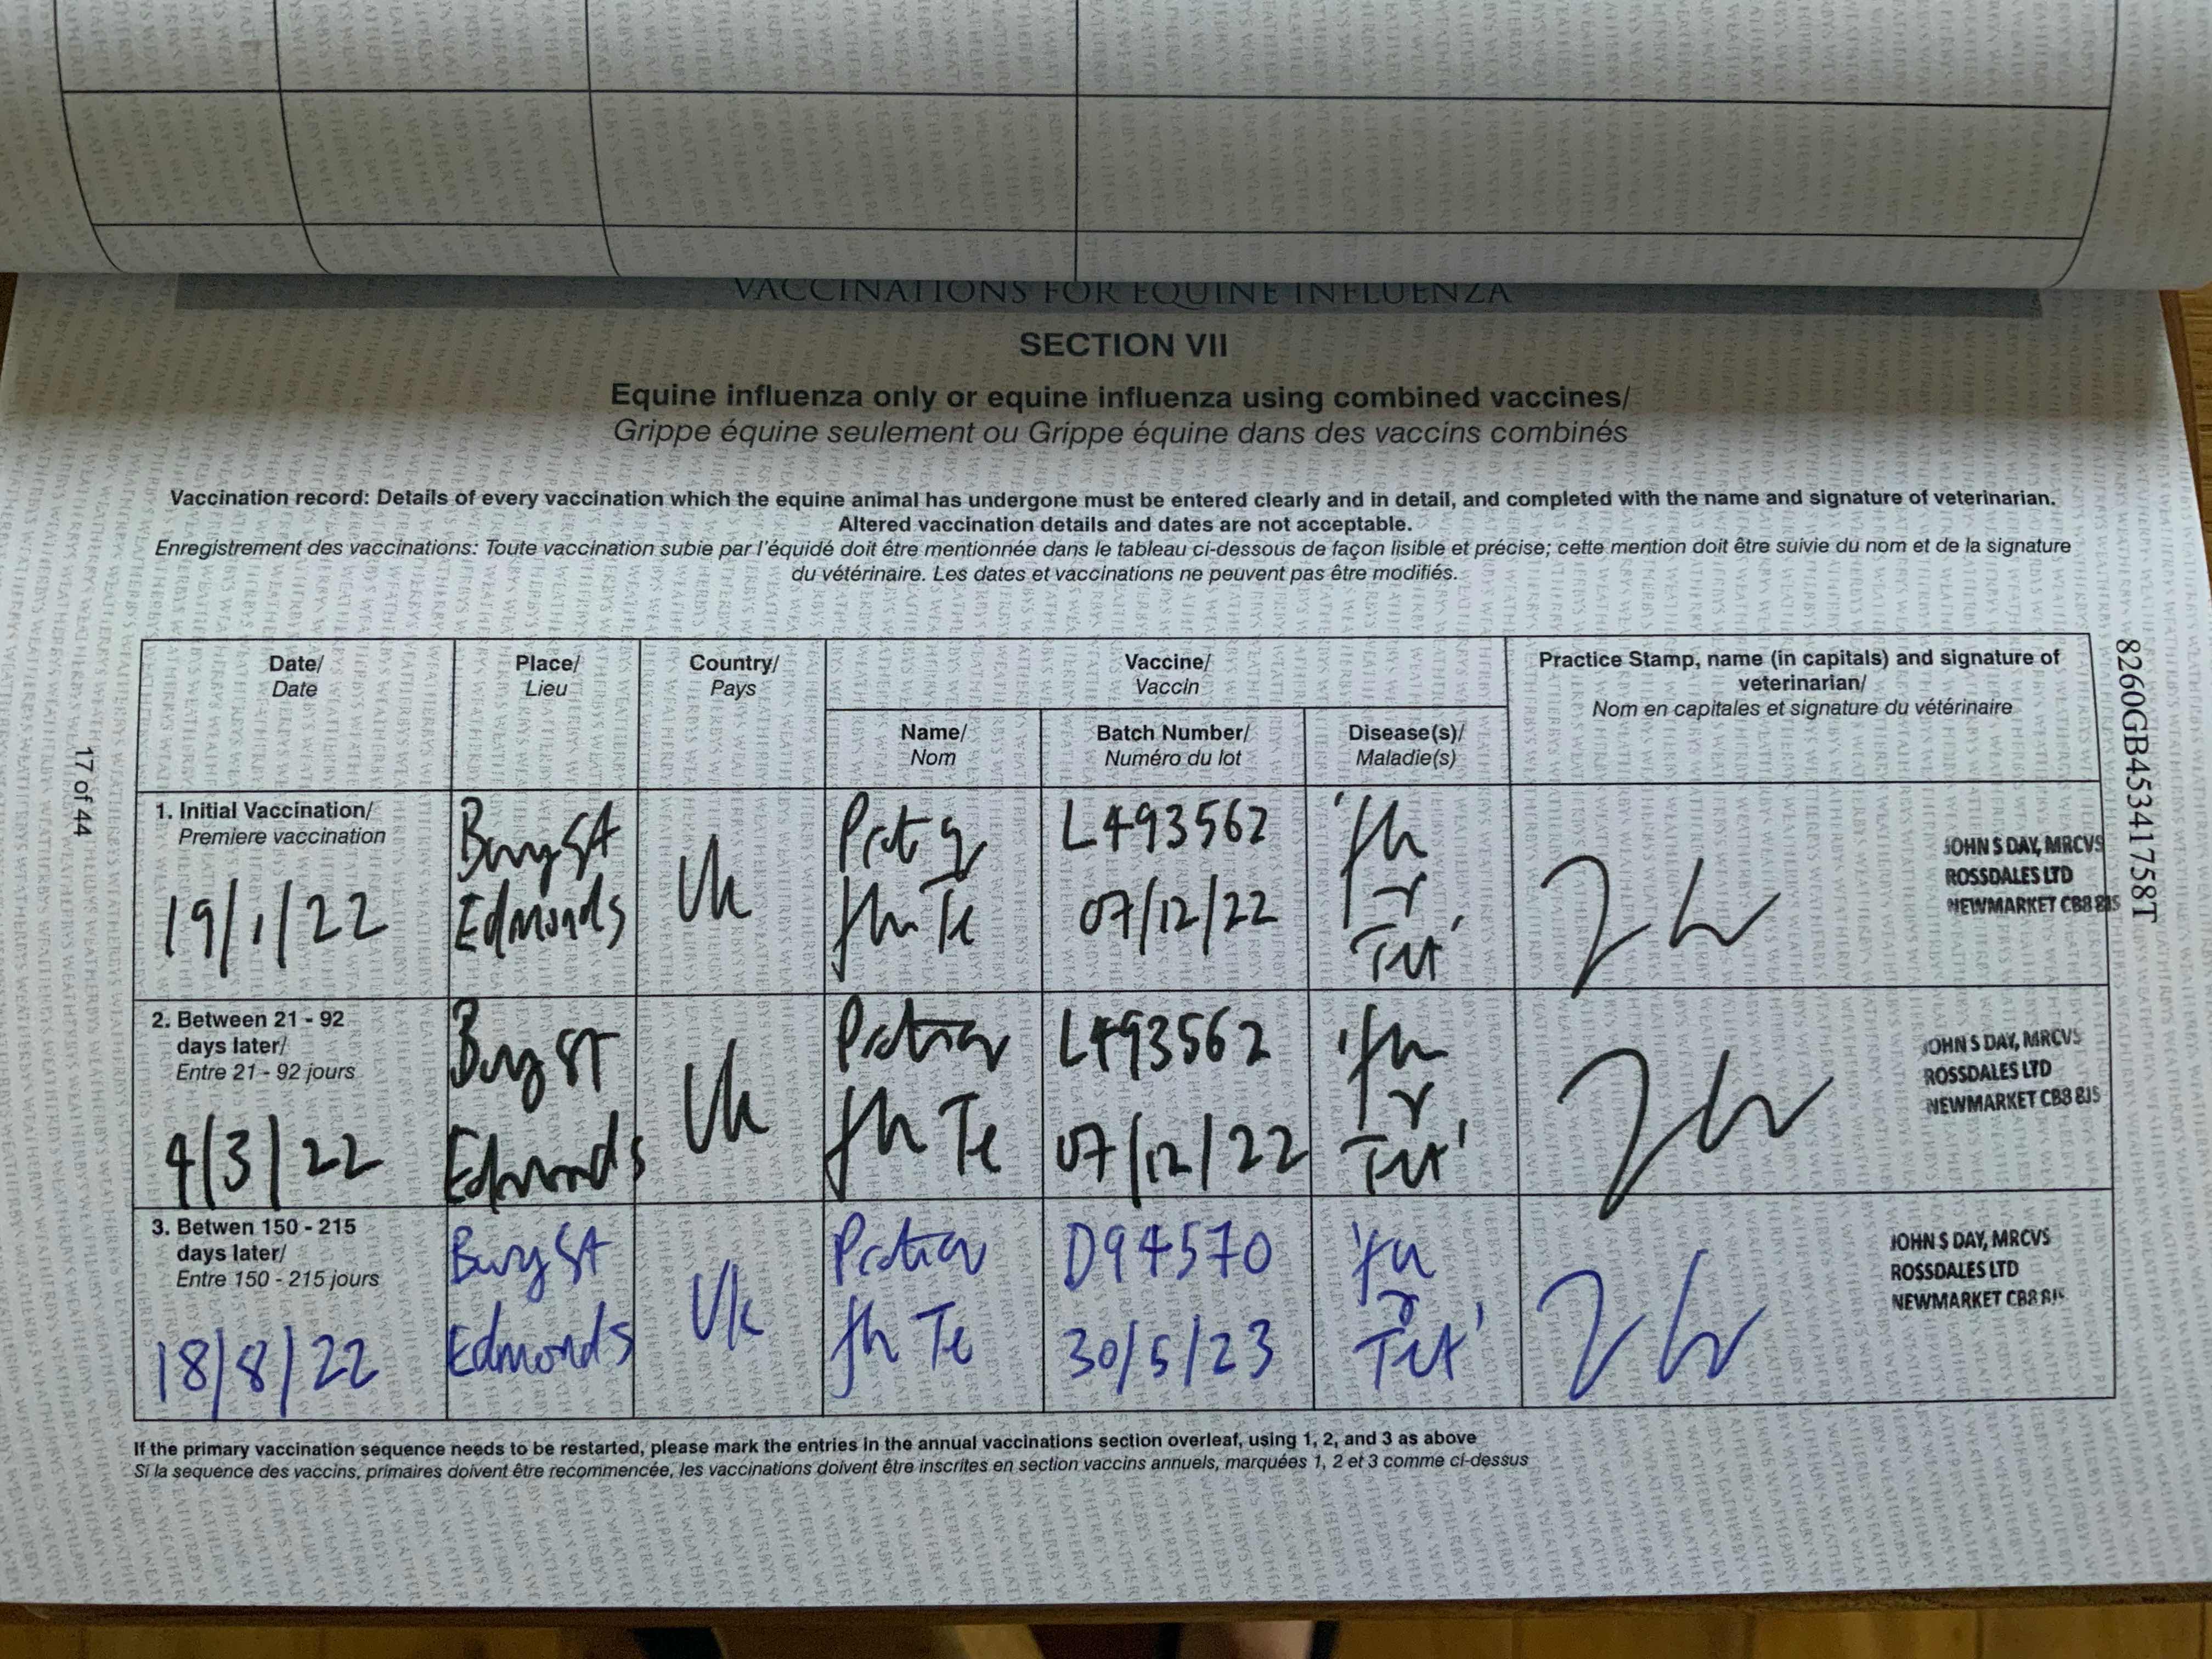 VACCINATIONS FOR EQUINE INFLUENZA
SECTION VII
Equine influenza only or equine influenza using combined vaccines/
Grippe équine seulement ou Grippe équine dans des vaccins combinés
Vaccination record: Details of every vaccination which the equine animal has undergone must be entered clearly and in detail, and completed with the name and signature of veterinarian.
Altered vaccination details and dates are not acceptable.
Enregistrement des vaccinations: Toute vaccination subie par l'équidé doit être mentionnée dans le tableau ci-dessous de façon lisible et précise; cette mention doit être suivie du nom et de la signature
du vétérinaire. Les dates et vaccinations ne peuvent pas être modifiés.
Date/
Date
Place/
Lieu
Country/
Pays
Vaccine/
Vaccin
Name/
Nom
Batch Number/
Numéro du lot
Disease(s)/
Maladie(s)
Practice Stamp, name (in capitals) and signature of
veterinarian/
Nom en capitales et signature du vétérinaire
1. Initial Vaccination/
Premiere vaccination
19/1/22
Bury St
Edmonds
Uk
Te
L493562
07/12/22
Tet
JOHN S DAY, MRCVS
ROSSDALES LTD
NEWMARKET CB8 8JS
2. Between 21 - 92
days later/
Entre 21 - 92 jours
4/3/22
Bury St
Edmonds
Uk
Te
L493562
07/12/22
Tet
JOHN S DAY, MRCVS
ROSSDALES LTD
NEWMARKET CB8 8JS
3. Betwen 150 - 215
days later/
Entre 150 - 215 jours
18/8/22
Bury St
Edmonds
Uk
Te
D94570
30/5/23
Tet
JOHN S DAY, MRCVS
ROSSDALES LTD
NEWMARKET CB8 8JS
If the primary vaccination sequence needs to be restarted, please mark the entries in the annual vaccinations section overleaf, using 1, 2, and 3 as above
Si la sequence des vaccins, primaires doivent être recommencée, les vaccinations doivent être inscrites en section vaccins annuels, marquées 1, 2 et 3 comme ci-dessus
17 of 44
8260GB45341758T